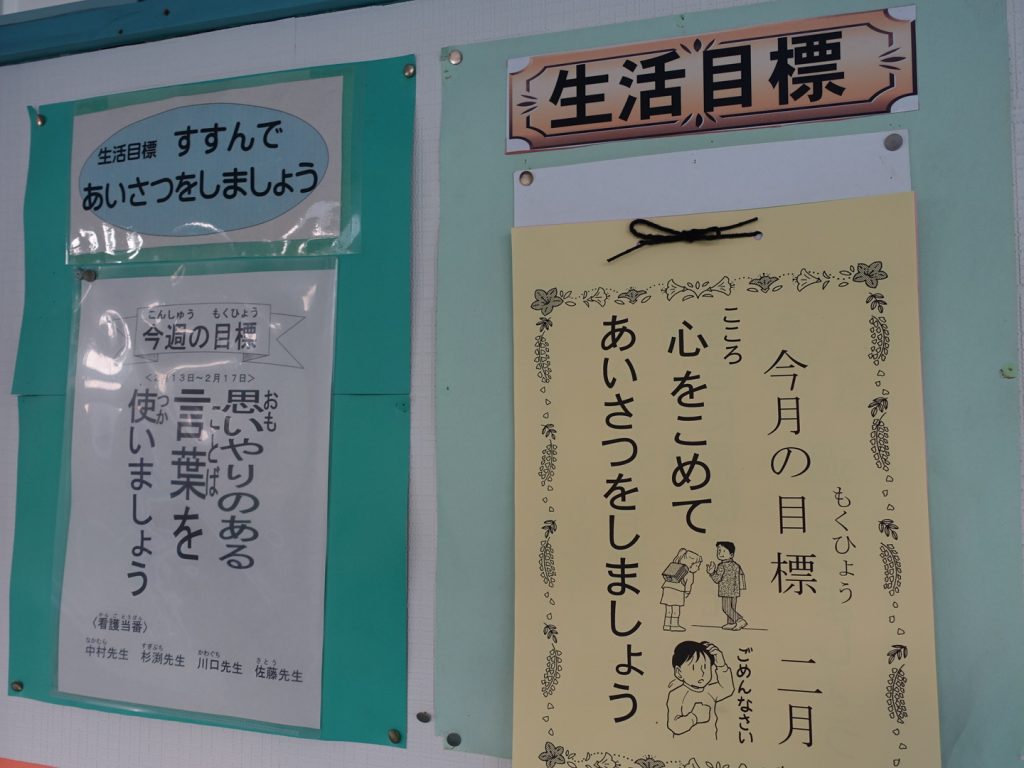 生活目標 すすんで
あいさつをしましょう
こんしゅう もくひょう
今週の目標
<2月13日~2月17日>
おも
思いやりのある
ことば
言葉を
つか
使いましょう
かんごとうばん
〈看護当番〉
なかむら すぎぶち かわぐち さとう
中村先生 杉渕先生 川口先生 佐藤先生
生活目標
もくひょう
今月の目標 二月
こころ
心をこめて
あいさつをしましょう
ごめんなさい